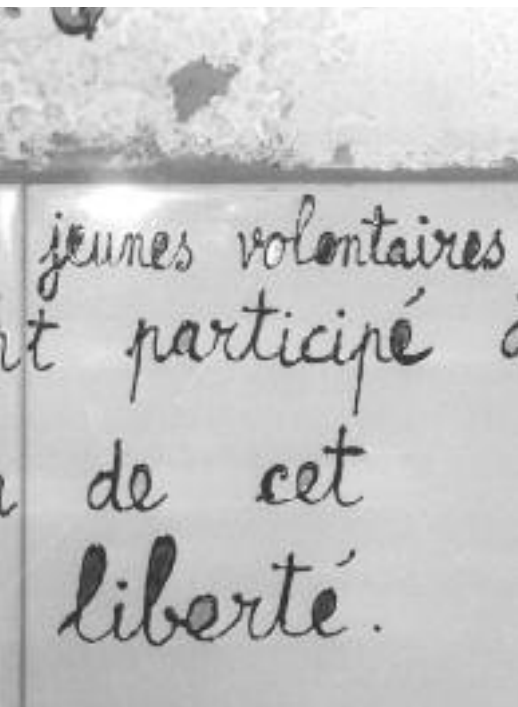 jeunes volontaires
participé
de cet
liberté.